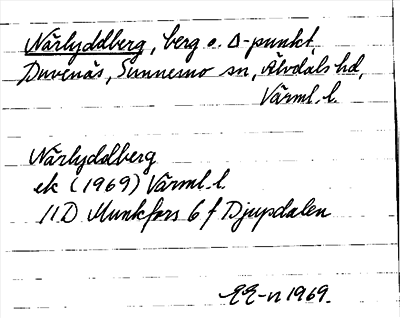 Närlyddberg, berg o. Δ-punkt,
Duvenäs, Sunnemo sn, Älvdals hd,
Värml. l.
Närlyddberg
ek (1969) Värml. l
11D Munkfors 6 f Djupdalen
1969.